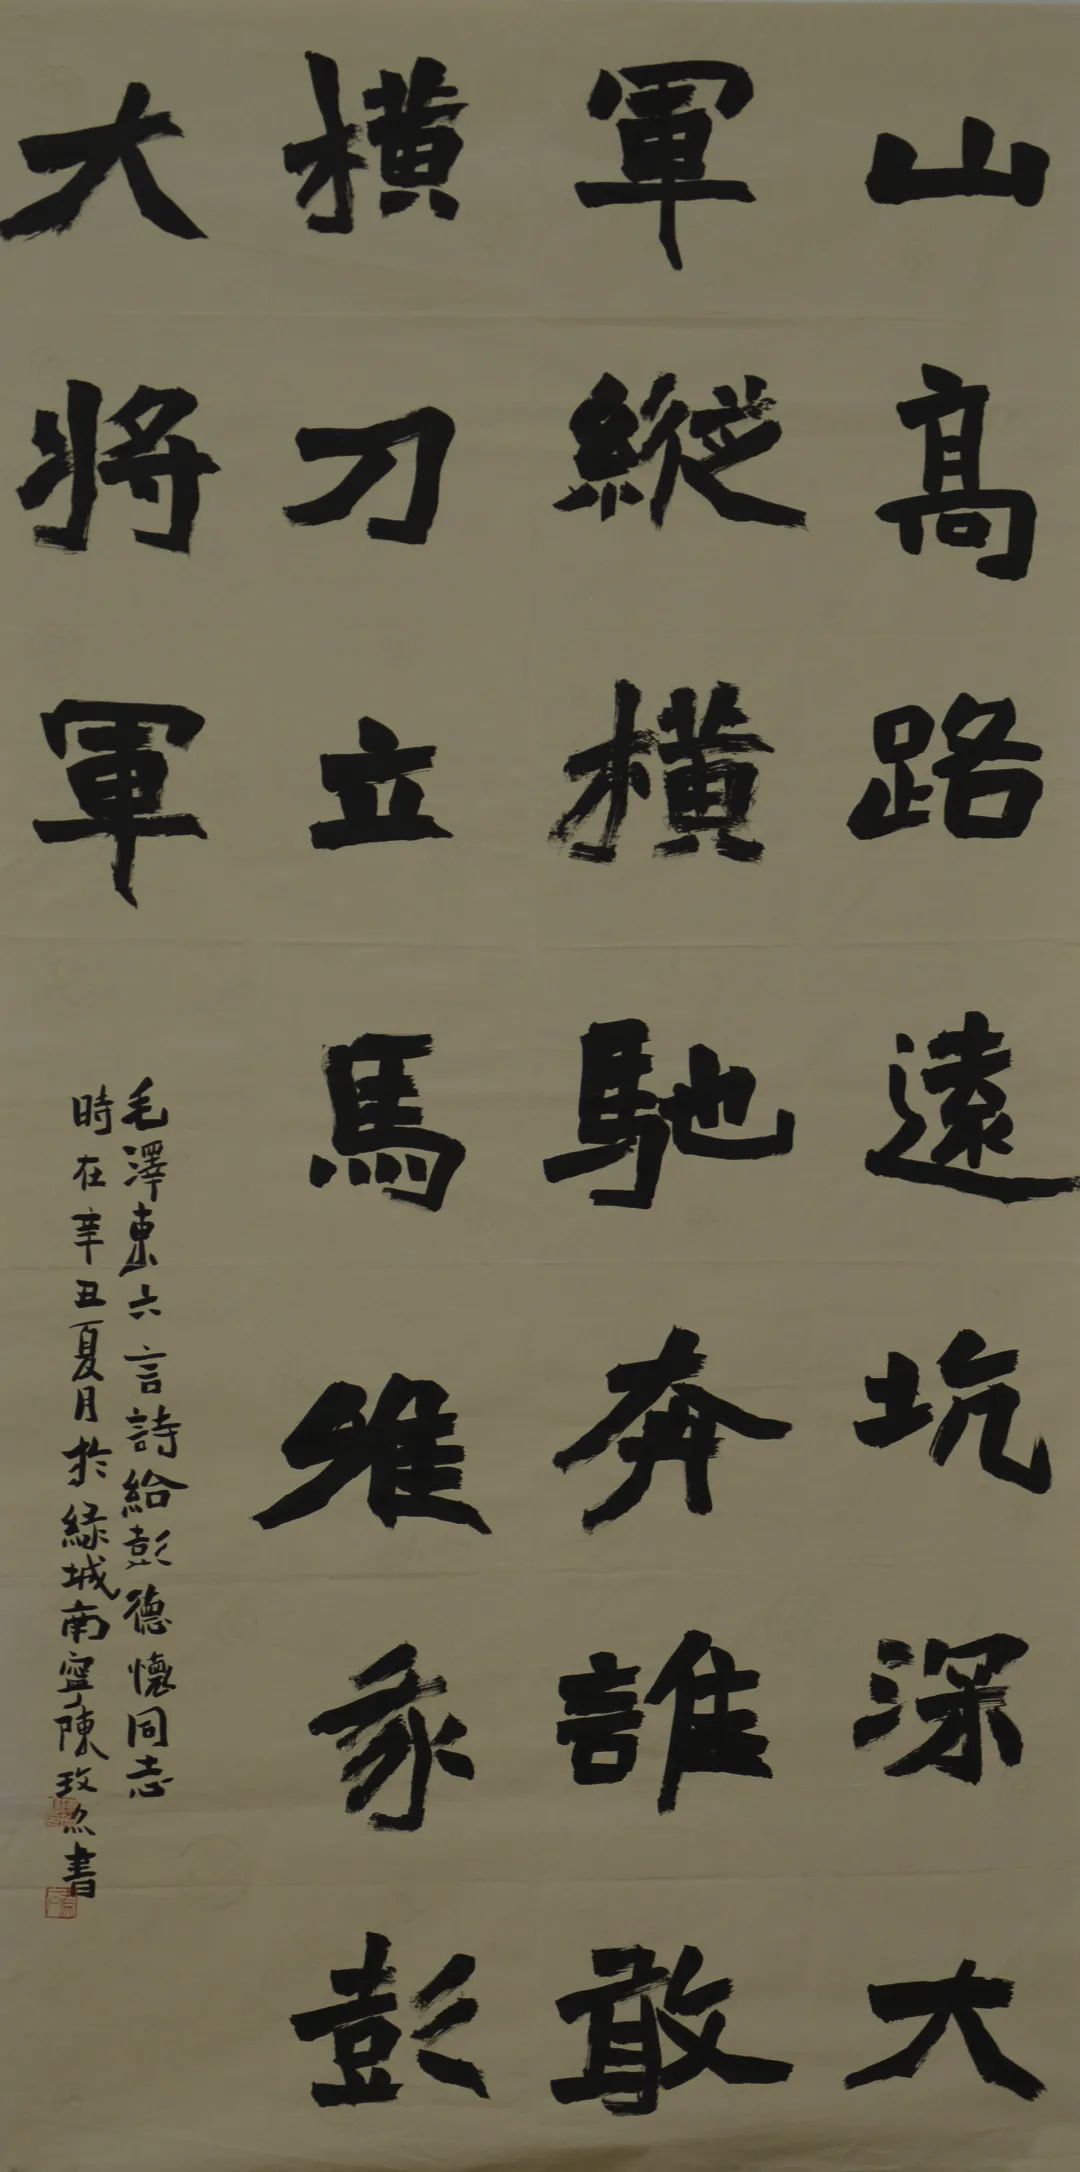 山高路遠坑深大
軍縱橫馳奔誰敢
橫刀立馬唯我彭
大將軍
毛澤東六言詩給彭德懷同志
時在辛丑夏月於緑城南寧陳玫書